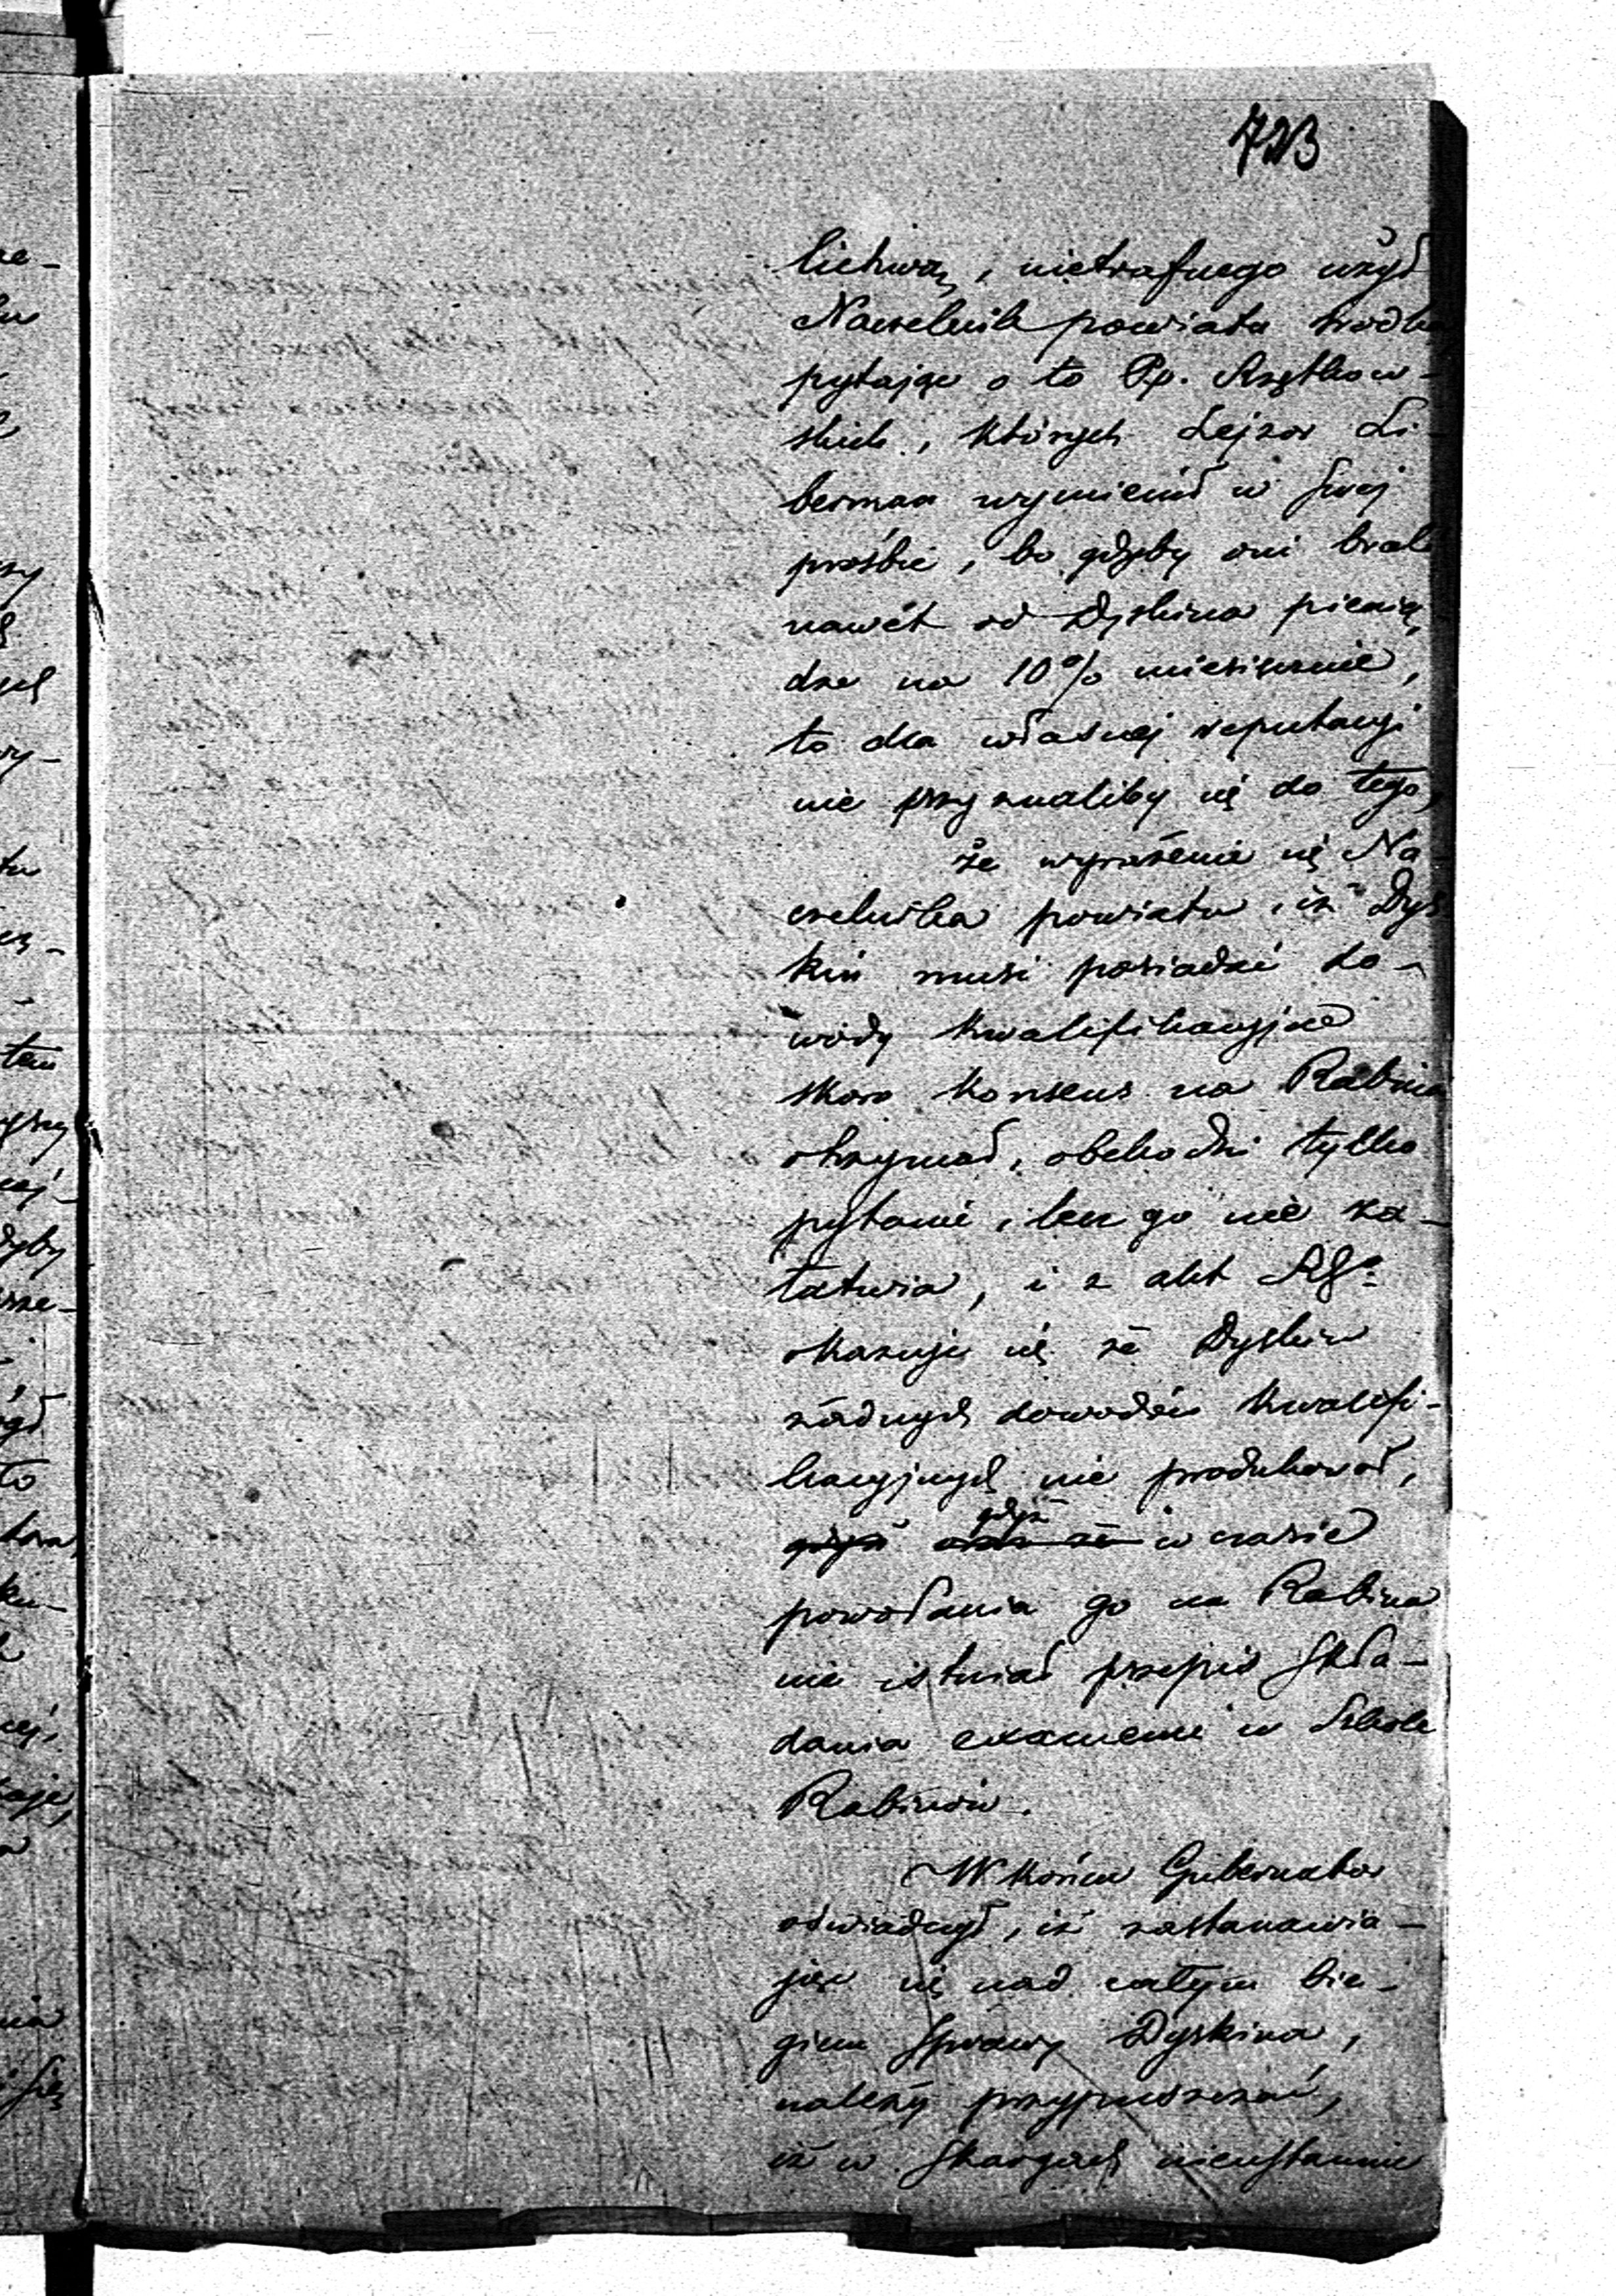 723
lichwą, nietrafnego użył
Naczelnik powiatu środka
pytając o to Pp.
skich, których Lejzor Li-
berman wymienił w swej
prośbie, bo gdyby oni brali
nawét od Dyskina pienią
dze na 10% miesięcznie,
to dla własnej reputacyi
nie przyznaliby się do tego,
że wyrażenie się Na
czelnika powiatu, iż Dys
kin musi posiadać do-
wody kwalifikacyjne
skoro konsens na Rabina
otrzymał, obchodzi tylko
pytanie, lecz go nie za-
łatwia, i z akt
okazuje się że Dyskin
żadnych dowodów kwalifi-
kacyjnych nie produkował,
gdyż
gdyż w czasie
powołania go na Rabina
nie istniał przepis skła-
dania examenu w Szkole
Rabinów.
W końcu Gubernator
oświadczył, iż zastanawia-
jąc się nad całym bie-
giem sprawy Dyskina,
należy przypuszczać,
iż w skargach nieustannie